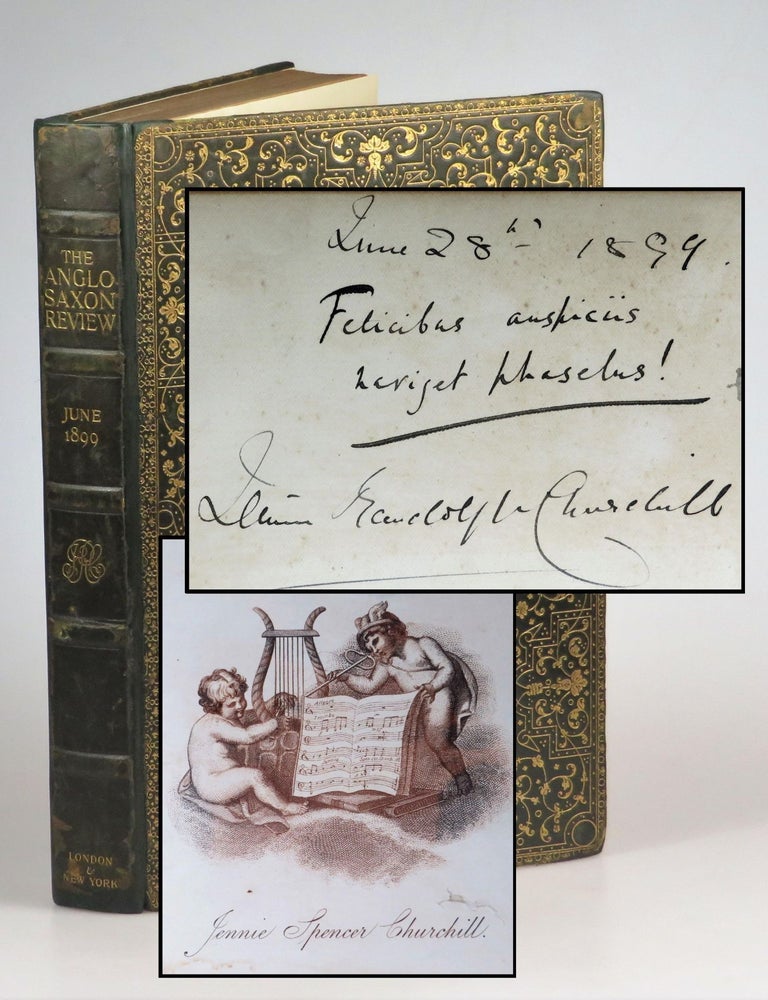 THE
ANGLO
SAXON
REVIEW
JUNE
1899
LONDON
&
NEW YORK
June 28th 1899.
Felicibus auspiciis
naviget phaselus!
Jennie Randolph Churchill
Jennie Spencer Churchill.